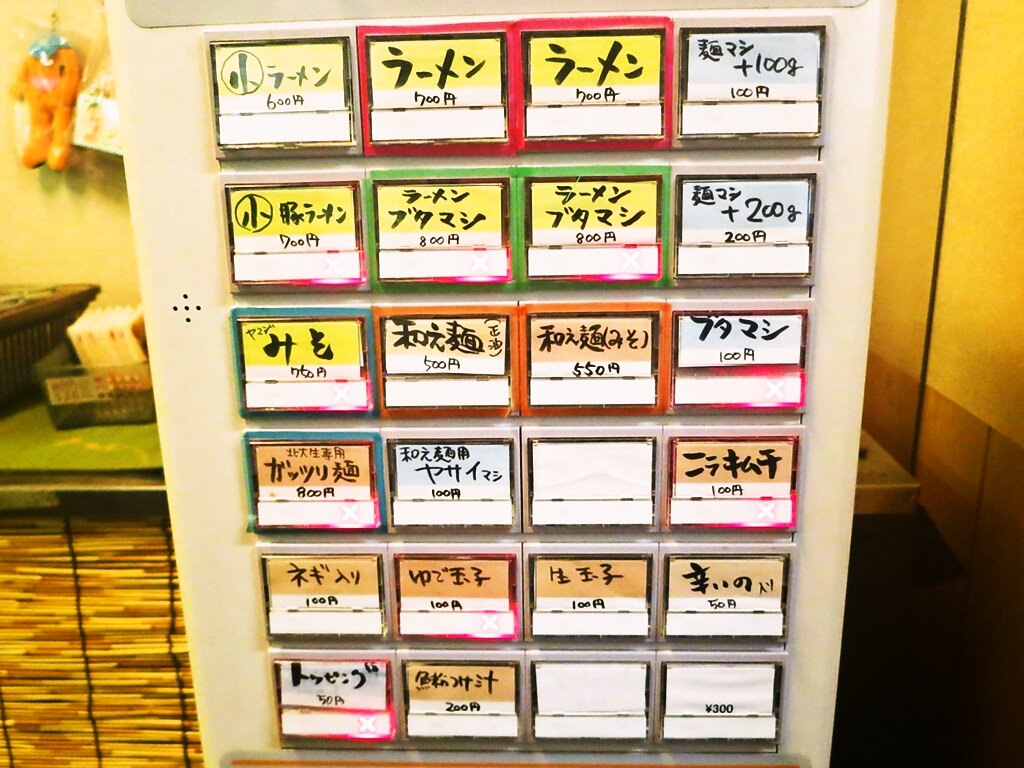 小 ラーメン
600円
ラーメン
700円
ラーメン
700円
麺マシ
+100g
100円
小 豚ラーメン
700円
ラーメン
ブタマシ
800円
ラーメン
ブタマシ
800円
麺マシ
+200g
200円
ヤマジ
みそ
750円
和え麺(正油)
500円
和え麺(みそ)
550円
ブタマシ
100円
北大生専用
ガッツリ麺
800円
和え麺用
ヤサイマシ
100円
ニラキムチ
100円
ネギ入り
100円
ゆで玉子
100円
生玉子
100円
辛いの入り
50円
トッピング
50円
魚粉つけ汁
200円
¥300